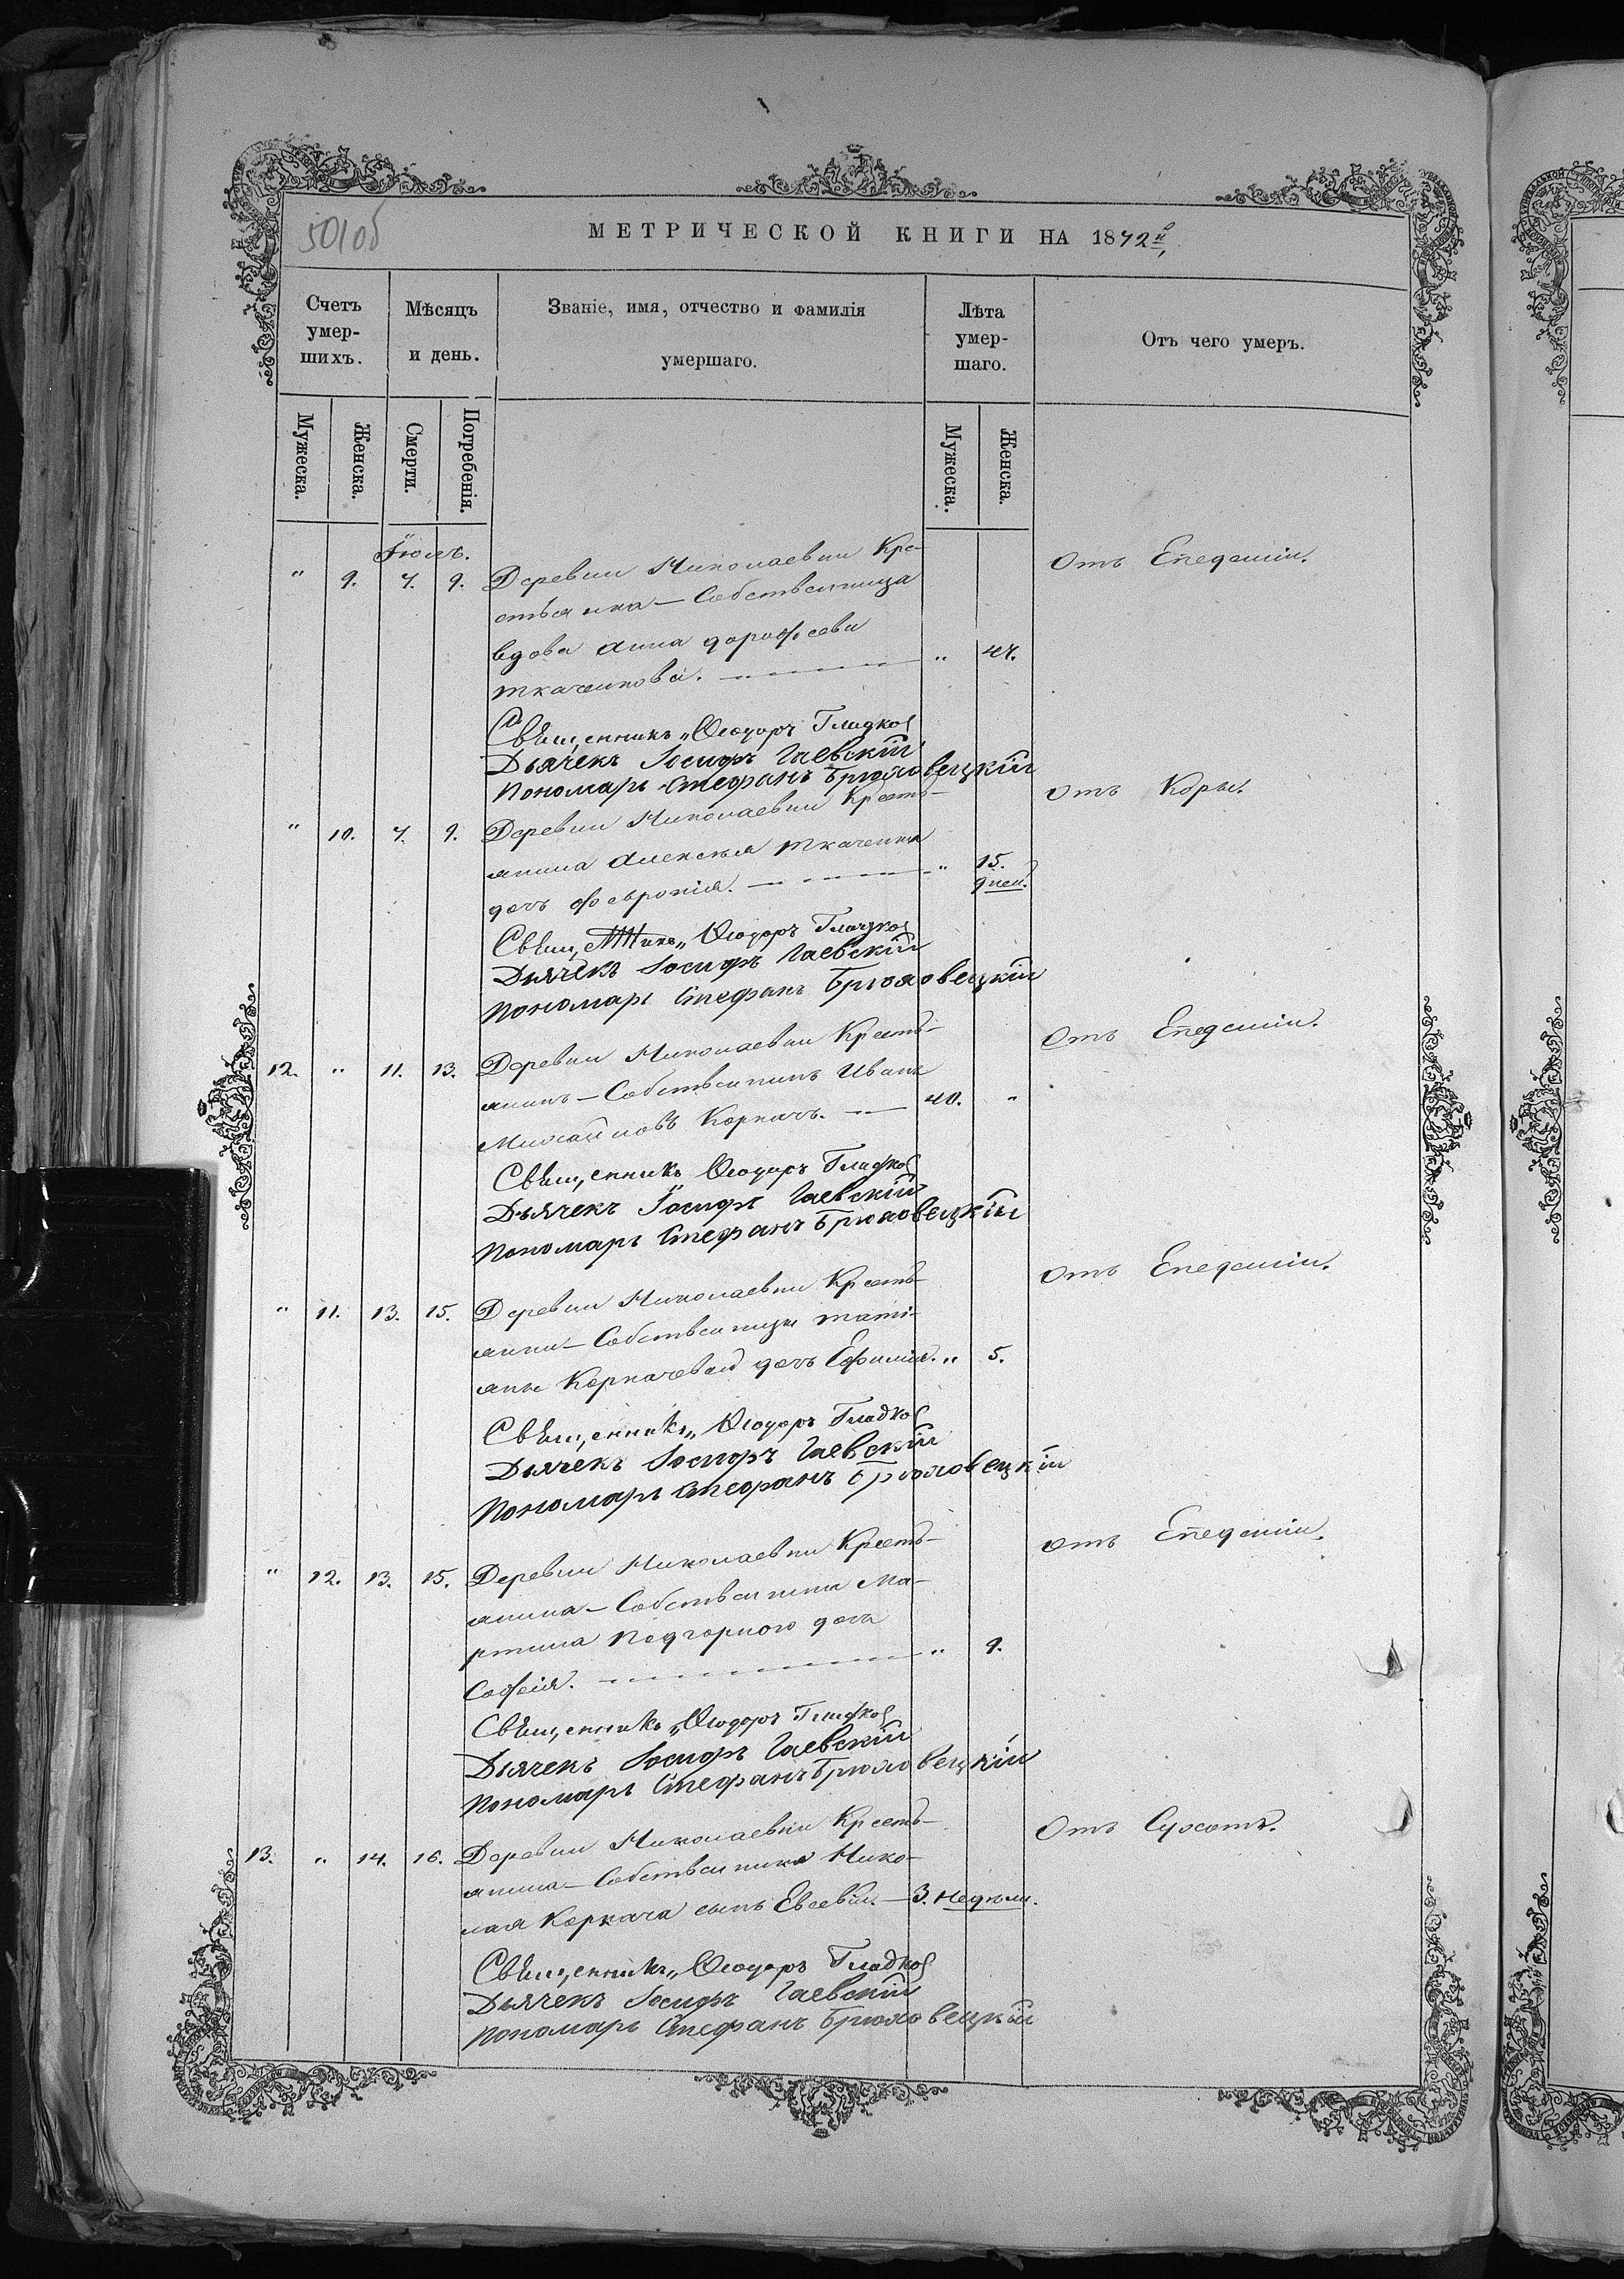 501об
МЕТРИЧЕСКОЙ КНИГИ НА 1872й
Счетъ умершихъ.
Мѣсяцъ и день.
Званіе, имя, отчество и фамилія умершаго.
Лѣта умершаго.
Отъ чего умеръ.
Мужеска.
Женска.
Смерти.
Погребенія.
Мужеска.
Женска.
Іюль.
" 9. 7. 9. Деревни Николаевки Кре- Отъ Епедеміи.
стьянка - Собственница
вдова Анна Дорофеева
Ткаченкова. " 47.
Священникъ Ѳеодоръ Гладкой
Дьячекъ Іосифъ Гаевскій
Пономарь Стефанъ Брюховецкій
" 10. 7. 9. Деревни Николаевки Кресть- Отъ Коры.
янина Алексѣя Ткаченка
дочь Февронія. " 15. дней.
Священникъ Ѳеодоръ Гладкой
Дьячекъ Іосифъ Гаевскій
Пономарь Стефанъ Брюховецкій
12. " 11. 13. Деревни Николаевки Кресть- Отъ Епедеміи.
янинъ - Собственникъ Иванъ
Михайловъ Коркачъ. 40. "
Священникъ Ѳеодоръ Гладкой
Дьячекъ Іосифъ Гаевскій
Пономарь Стефанъ Брюховецкій
" 11. 13. 15. Деревни Николаевки Кресть- Отъ Епедеміи.
янки - Собственницы Тати-
яны Коркачевой дочь Ефимія. " 5.
Священникъ Ѳеодоръ Гладкой
Дьячекъ Іосифъ Гаевскій
Пономарь Стефанъ Брюховецкій
" 12. 13. 15. Деревни Николаевки Кресть- Отъ Епедеміи.
янина - Собственника Ма-
ртина Подгорного дочь
Софія. " 9.
Священникъ Ѳеодоръ Гладкой
Дьячекъ Іосифъ Гаевскій
Пономарь Стефанъ Брюховецкій
13. " 14. 16. Деревни Николаевки Кресть- Отъ Сухотъ.
янина - Собственника Нико-
лая Коркача сынъ Евсевій. - 3. недѣли.
Священникъ Ѳеодоръ Гладкой
Дьячекъ Іосифъ Гаевскій
Пономарь Стефанъ Брюховецкій